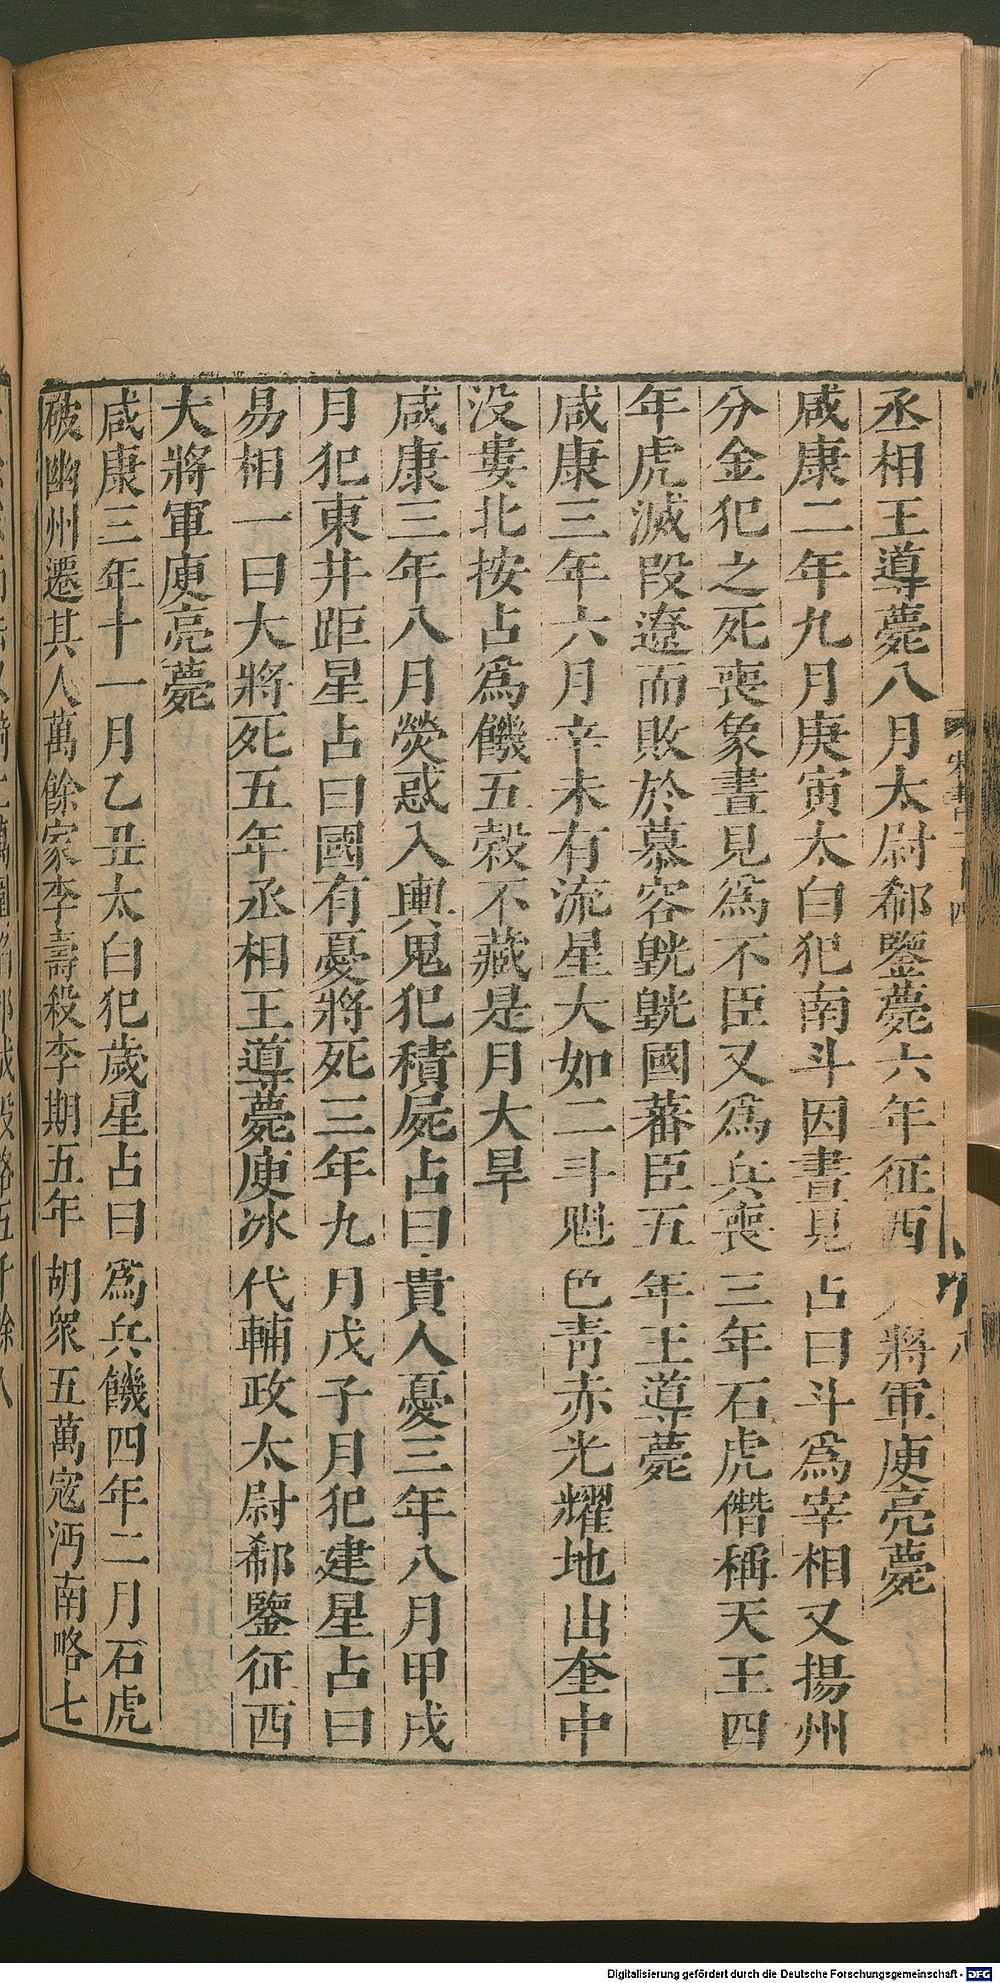 丞相王導薨八月太尉郗鑒薨六年征西大將軍庾亮薨
咸康二年九月庚寅太白犯南斗因晝見占曰斗爲宰相又揚州
分金犯之死喪象晝見爲不臣又爲兵喪三年石虎僭稱天王四
年虎滅段遼而敗於慕容皝皝國蕃臣五年王導薨
咸康三年六月辛未有流星大如二斗魁色青赤光耀地出奎中
没婁北按占爲饑五穀不藏是月大旱
咸康三年八月熒惑入輿鬼犯積屍占曰貴人憂三年八月甲戌
月犯東井距星占曰國有憂將死三年九月戊子月犯建星占曰
易相一曰大將死五年丞相王導薨庾冰代輔政太尉郗鑒征西
大將軍庾亮薨
咸康三年十一月乙丑太白犯歲星占曰爲兵饑四年二月石虎
破幽州遷其人萬餘家李壽殺李期五年胡衆五萬寇沔南略七
宋書二十四
八
Digitalisierung gefördert durch die Deutsche Forschungsgemeinschaft - DFG